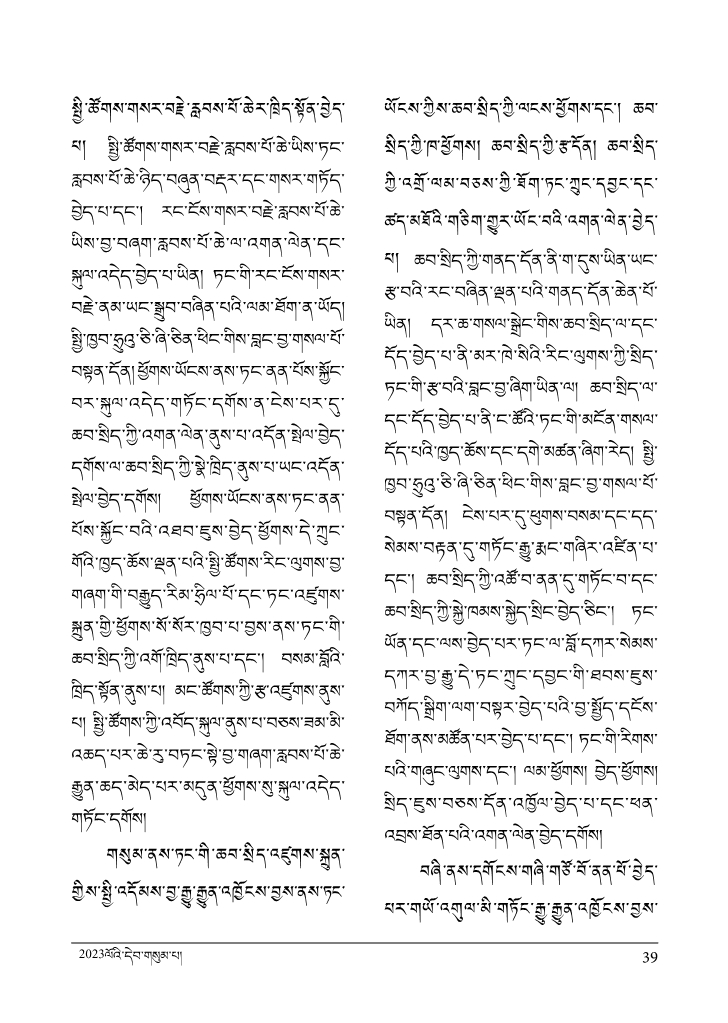 སྤྱི་ཚོགས་གསར་བརྗེ་རླབས་པོ་ཆེར་ཁྲིད་སྟོན་བྱེད་
པ། སྤྱི་ཚོགས་གསར་བརྗེ་རླབས་པོ་ཆེ་ཡིས་ཏང་
རླབས་པོ་ཆེ་ཉིད་བཞུན་བརྡར་དང་གསར་གཏོད་
བྱེད་པ་དང་། རང་ངོས་གསར་བརྗེ་རླབས་པོ་ཆེ་
ཡིས་བྱ་བཞག་རླབས་པོ་ཆེ་ལ་འགན་ལེན་དང་
སྐུལ་འདེད་བྱེད་པ་ཡིན། ཏང་གི་རང་ངོས་གསར་
བརྗེ་ནམ་ཡང་སྒྲུབ་བཞིན་པའི་ལམ་ཐོག་ན་ཡོད།
སྤྱི་ཁྱབ་ཧྲུའུ་ཅི་ཞི་ཅིན་ཕིང་གིས་བླང་བྱ་གསལ་པོ་
བསྟན་དོན། ཕྱོགས་ཡོངས་ནས་ཏང་ནན་པོས་སྐྱོང་
བར་སྐུལ་འདེད་གཏོང་དགོས་ན་ངེས་པར་དུ་
ཆབ་སྲིད་ཀྱི་འགན་ལེན་ནུས་པ་འདོན་སྤེལ་བྱེད་
དགོས་ལ་ཆབ་སྲིད་ཀྱི་སྣེ་ཁྲིད་ནུས་པ་ཡང་འདོན་
སྤེལ་བྱེད་དགོས། ཕྱོགས་ཡོངས་ནས་ཏང་ནན་
པོས་སྐྱོང་བའི་འཐབ་ཇུས་བྱེད་ཕྱོགས་དེ་ཀྲུང་
གོའི་ཁྱད་ཆོས་ལྡན་པའི་སྤྱི་ཚོགས་རིང་ལུགས་བྱ་
གཞག་གི་བརྒྱུད་རིམ་ཧྲིལ་པོ་དང་ཏང་འཛུགས་
སྐྲུན་གྱི་ཕྱོགས་སོ་སོར་ཁྱབ་པ་བྱས་ནས་ཏང་གི་
ཆབ་སྲིད་ཀྱི་འགོ་ཁྲིད་ནུས་པ་དང་། བསམ་བློའི་
ཁྲིད་སྟོན་ནུས་པ། མང་ཚོགས་ཀྱི་རྩ་འཛུགས་ནུས་
པ། སྤྱི་ཚོགས་ཀྱི་འབོད་སྐུལ་ནུས་པ་བཅས་ཟམ་མི་
འཆད་པར་ཆེ་རུ་བཏང་སྟེ་བྱ་གཞག་རླབས་པོ་ཆེ་
རྒྱུན་ཆད་མེད་པར་མདུན་ཕྱོགས་སུ་སྐུལ་འདེད་
གཏོང་དགོས།
གསུམ་ནས་ཏང་གི་ཆབ་སྲིད་འཛུགས་སྐྲུན་
གྱིས་སྤྱི་འདོམས་བྱ་རྒྱུ་རྒྱུན་འཁྱོངས་བྱས་ནས་ཏང་
ཡོངས་ཀྱིས་ཆབ་སྲིད་ཀྱི་ལངས་ཕྱོགས་དང་། ཆབ་
སྲིད་ཀྱི་ཁ་ཕྱོགས། ཆབ་སྲིད་ཀྱི་རྩ་དོན། ཆབ་སྲིད་
ཀྱི་འགྲོ་ལམ་བཅས་ཀྱི་ཐོག་ཏང་ཀྲུང་དབྱང་དང་
ཚད་མཐོའི་གཅིག་གྱུར་ཡོང་བའི་འགན་ལེན་བྱེད་
པ། ཆབ་སྲིད་ཀྱི་གནད་དོན་ནི་ག་དུས་ཡིན་ཡང་
རྩ་བའི་རང་བཞིན་ལྡན་པའི་གནད་དོན་ཆེན་པོ་
ཡིན། དར་ཆ་གསལ་སྒྲེང་གིས་ཆབ་སྲིད་ལ་དང་
དོད་བྱེད་པ་ནི་མར་ཁེ་སིའི་རིང་ལུགས་ཀྱི་སྲིད་
ཏང་གི་རྩ་བའི་བླང་བྱ་ཞིག་ཡིན་ལ། ཆབ་སྲིད་ལ་
དང་དོད་བྱེད་པ་ནི་ང་ཚོའི་ཏང་གི་མངོན་གསལ་
དོད་པའི་ཁྱད་ཆོས་དང་དགེ་མཚན་ཞིག་རེད། སྤྱི་
ཁྱབ་ཧྲུའུ་ཅི་ཞི་ཅིན་ཕིང་གིས་བླང་བྱ་གསལ་པོ་
བསྟན་དོན། ངེས་པར་དུ་ཕུགས་བསམ་དང་དད་
སེམས་བརྟན་དུ་གཏོང་རྒྱུ་རྨང་གཞིར་འཛིན་པ་
དང་། ཆབ་སྲིད་ཀྱི་འཚོ་བ་ནན་དུ་གཏོང་བ་དང་
ཆབ་སྲིད་ཀྱི་སྐྱེ་ཁམས་སྐྱེད་སྲིང་བྱེད་ཅིང་། ཏང་
ཡོན་དང་ལས་བྱེད་པར་ཏང་ལ་བློ་དཀར་སེམས་
དཀར་བྱ་རྒྱུ་དེ་ཏང་ཀྲུང་དབྱང་གི་ཐབས་ཇུས་
བཀོད་སྒྲིག་ལག་བསྟར་བྱེད་པའི་བྱ་སྤྱོད་དངོས་
ཐོག་ནས་མཚོན་པར་བྱེད་པ་དང་། ཏང་གི་རིགས་
པའི་གཞུང་ལུགས་དང་། ལམ་ཕྱོགས། བྱེད་ཕྱོགས།
སྲིད་ཇུས་བཅས་དོན་འཁྱོལ་བྱེད་པ་དང་ཕན་
འབྲས་ཐོན་པའི་འགན་ལེན་བྱེད་དགོས།
བཞི་ནས་དགོངས་གཞི་གཙོ་བོ་ནན་པོ་བྱེད་
པར་གཡོ་འགུལ་མི་གཏོང་རྒྱུ་རྒྱུན་འཁྱོངས་བྱས་
2023ལོའི་དེབ་གསུམ་པ། 39